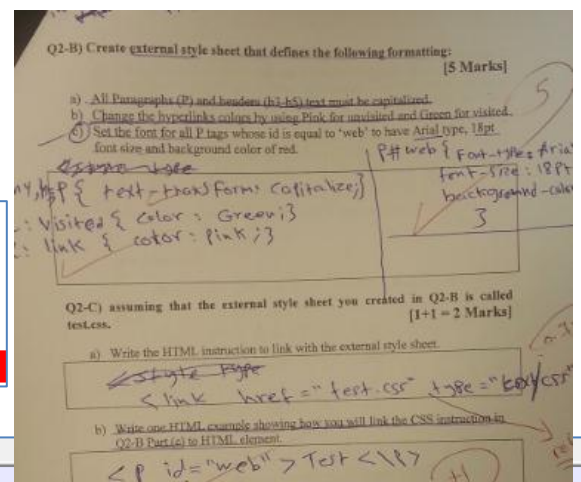 Q2-B) Create external style sheet that defines the following formatting:
[5 Marks]
a) All Paragraphs (P) and headers (h1-h5) text must be capitalized.
b) Change the hyperlinks colors by using Pink for unvisited and Green for visited.
c) Set the font for all P tags whose id is equal to 'web' to have Arial type, 18pt
font size and background color of red.
5
<style type
h5,P { text-transform: capitalize;}
: visited { color : Green;}
: link { color : Pink ;}
P# web { font-type: Aria
font-size : 18Pt
background-color
}
Q2-C) assuming that the external style sheet you created in Q2-B is called
test.css.
[1+1 = 2 Marks]
a) Write the HTML instruction to link with the external style sheet.
<style type
<link href="test.css" type="text/css"
b) Write one HTML example showing how you will link the CSS instruction in
Q2-B Part (c) to HTML element.
<P id="web"> Test <\P>
+1